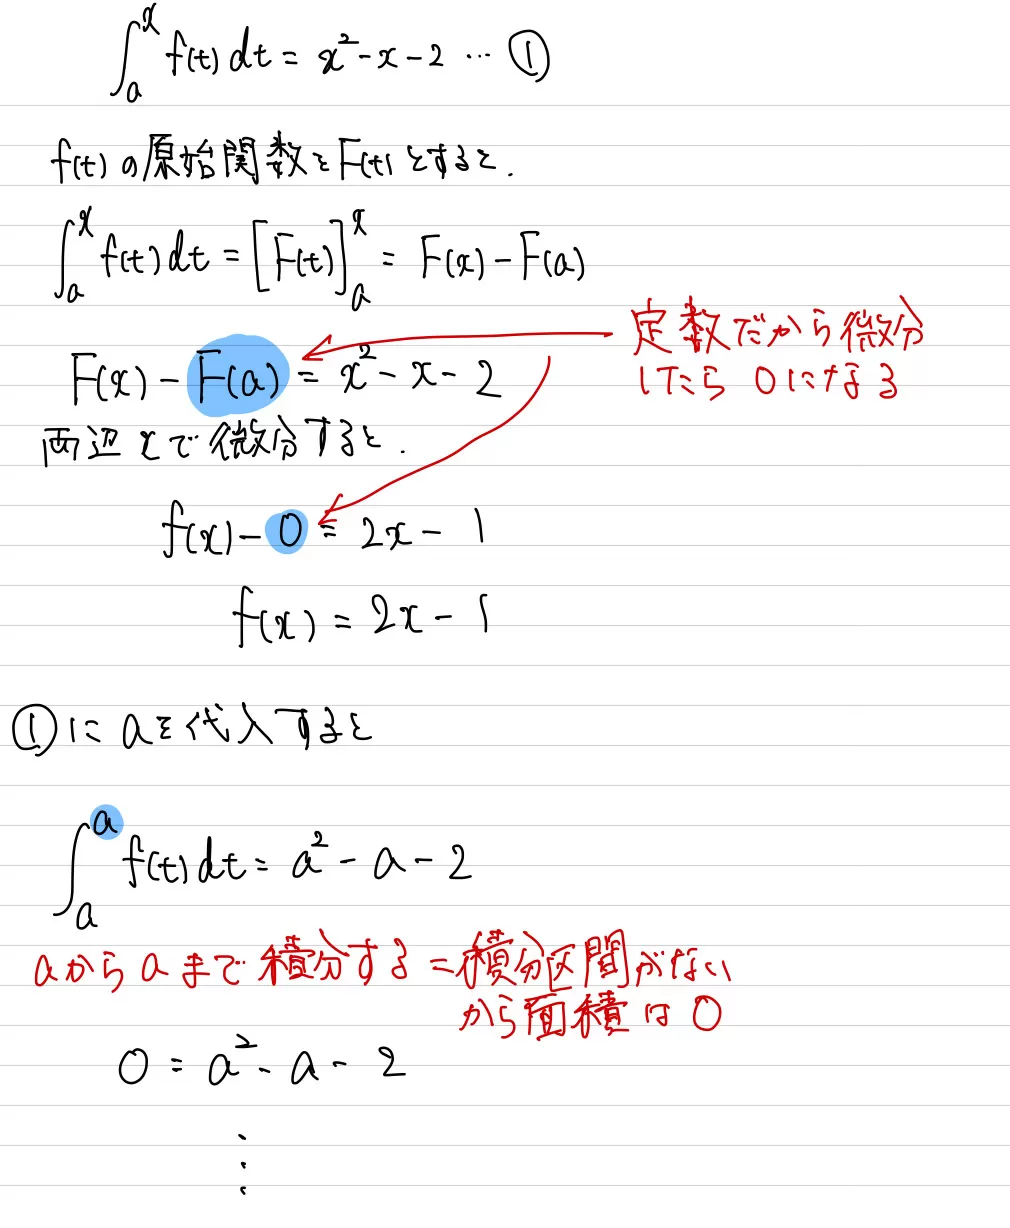 ∫ₐˣ f(t)dt = x² - x - 2 … ①
f(t)の原始関数をF(t)とすると.
∫ₐˣ f(t)dt = [F(t)]ₐˣ = F(x) - F(a)
定数だから微分
したら 0になる
F(x) - F(a) = x² - x - 2
両辺xで微分すると.
f(x) - 0 = 2x - 1
f(x) = 2x - 1
①にaを代入すると
∫ₐᵃ f(t)dt = a² - a - 2
aからaまで積分する = 積分区間がない
から面積は0
0 = a² - a - 2
⋮